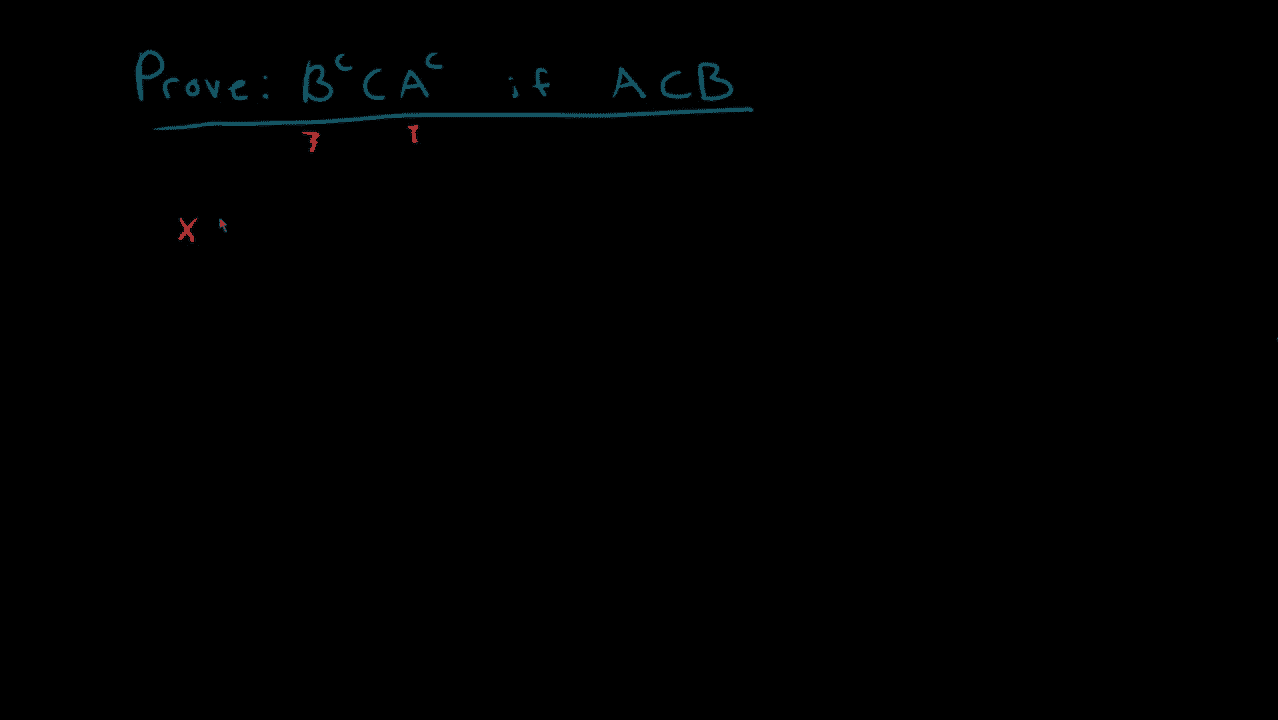 Prove: Bᶜ ⊂ Aᶜ if A ⊂ B
x